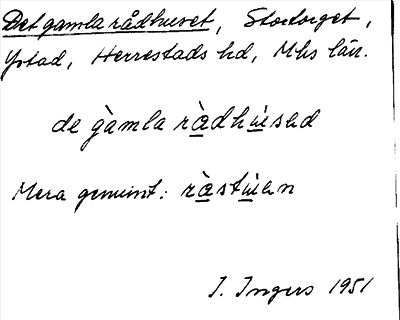 Det gamla rådhuset, Stortorget,
Ystad, Herrestads hd, Mhs län.
de gàmla ràdhùsəd
Mera genuint: ràstùən
I. Ingers 1951